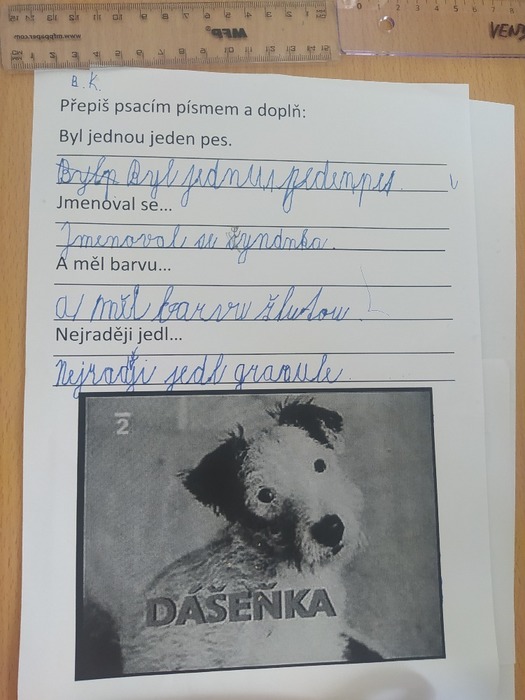 www.mfppaper.com
MFP
VENS
B. K.
Přepiš psacím písmem a doplň:
Byl jednou jeden pes.
Byl jednou jeden pes.
Jmenoval se...
Jmenoval se
A měl barvu...
A měl barvu žlutou
Nejraději jedl...
Nejradji jedl granule.
2
DÁŠEŇKA